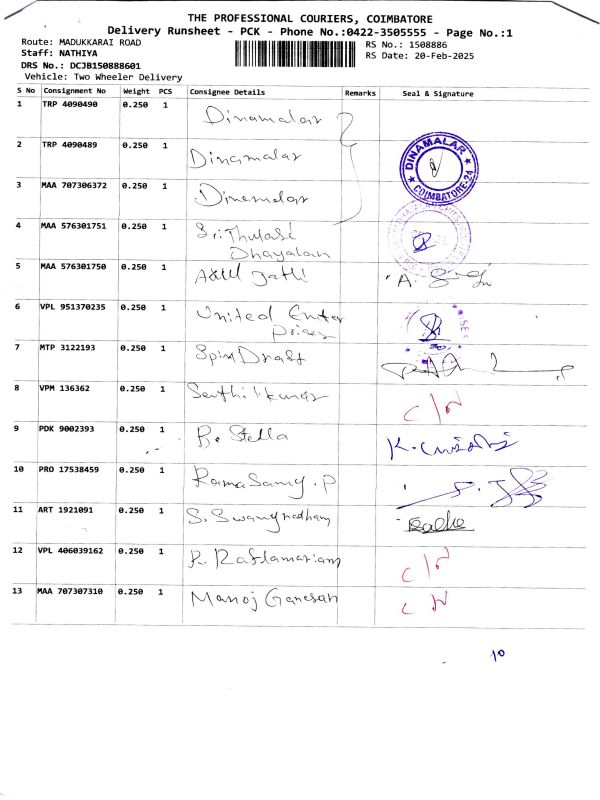 THE PROFESSIONAL COURIERS, COIMBATORE
Delivery Runsheet - PCK - Phone No.:0422-3505555 - Page No.:1
Route: MADUKKARAI ROAD
RS No.: 1508886
Staff: NATHIYA
RS Date: 20-Feb-2025
DRS No.: DCJB150888601
Vehicle: Two Wheeler Delivery
S No Consignment No Weight PCS Consignee Details Remarks Seal & Signature
1 TRP 4090490 0.250 1 Dinamalar
2 TRP 4090489 0.250 1 Dinamalar
DINAMALAR
COIMBATORE-24
3 MAA 707306372 0.250 1 Dinamalar
4 MAA 576301751 0.250 1 Sri Thulasi
Dhayalan
5 MAA 576301750 0.250 1
6 VPL 951370235 0.250 1 United Enter
prises
7 MTP 3122193 0.250 1 Spin Draft
8 VPM 136362 0.250 1 Senthilkumar C/N
9 PDK 9002393 0.250 1 Stella
10 PRO 17538459 0.250 1 Ramasamy . P
11 ART 1921091 0.250 1 S.
12 VPL 406039162 0.250 1 C/N
13 MAA 707307310 0.250 1 Manoj Ganesan C N
10